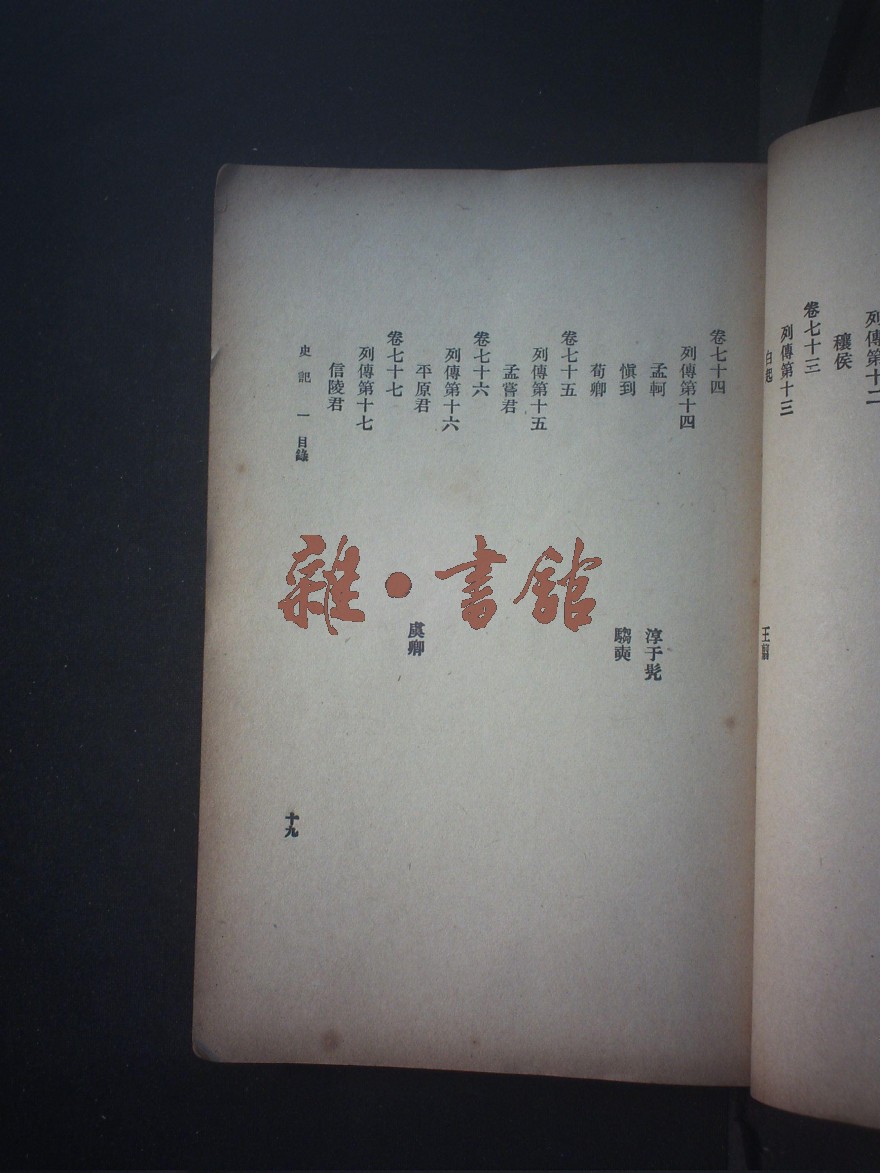 列傳第十二
穰侯
卷七十三
列傳第十三
白起
王翦
卷七十四
列傳第十四
孟軻
淳于髡
慎到
騶奭
荀卿
卷七十五
列傳第十五
孟嘗君
卷七十六
列傳第十六
平原君
虞卿
卷七十七
列傳第十七
信陵君
史記 一 目錄
十九
雜·書館